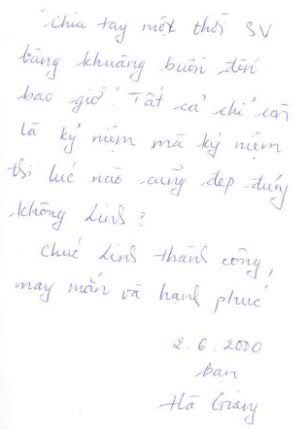 "Chia tay một thời SV
bâng khuâng buồn đến
bao giờ". Tất cả chỉ còn
là kỷ niệm mà kỷ niệm
thì lúc nào cũng đẹp đúng
không Linh?
Chúc Linh thành công,
may mắn và hạnh phúc
2.6.2000
Bạn
Hà Giang